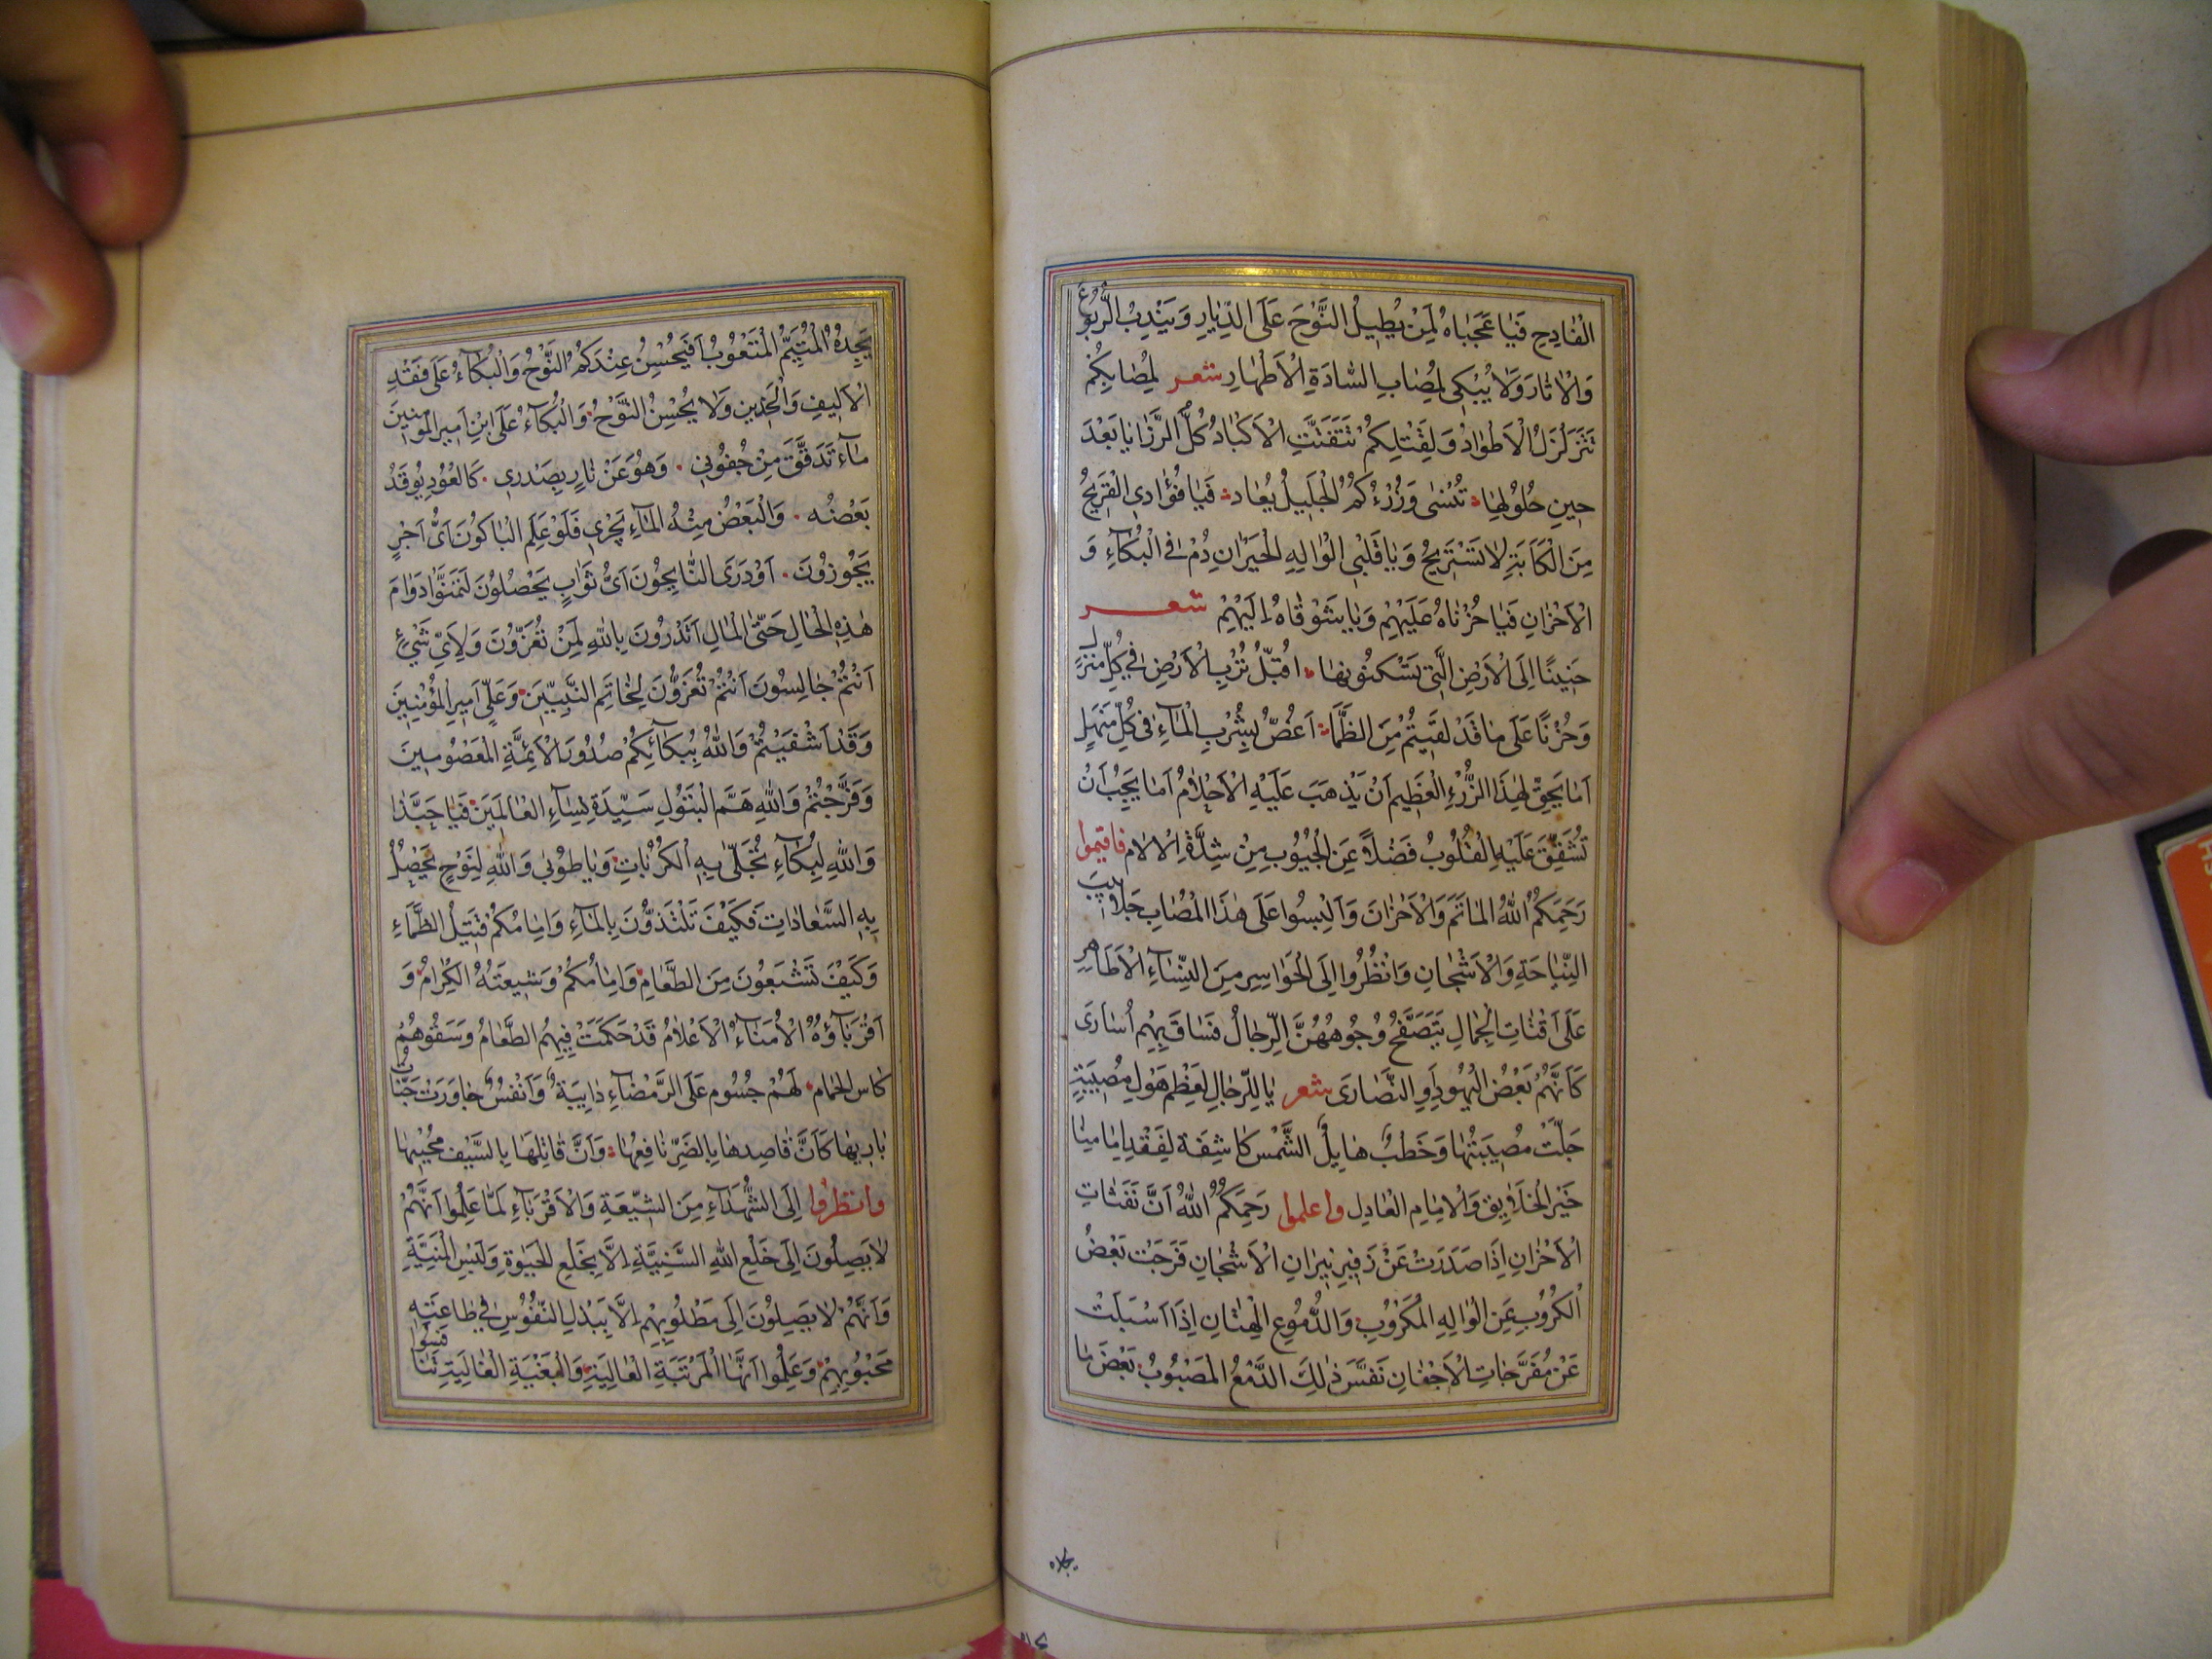 الْفٰادِحِ فَيٰا عَجَبٰاهُ لِمَنْ يُطِيلُ النَّوْحَ عَلَى الدِّيٰارِ وَيَنْدِبُ الرُّبُوعَ
وَالْاٰثٰارَ وَلَا يُبْكِى لِمُصٰابِ السّٰادَةِ الْاَطْهٰارِ شعر لِمُصٰابِكُمْ
تَتَزَلْزَلُ الْاَطْوٰادُ وَلِقَتْلِكُمْ تَتَفَتَّتِ الْاَكْبٰادُ كُلُّ الرَّزٰايٰا بَعْدَ
حِينِ حُلُولِهٰا تُنْسٰى وَرُزْءُكُمُ الْجَلِيلُ يُعٰاد فَيٰا فُؤٰادِى الْقَرِيحُ
مِنَ الْكَآبَةِ لٰا تَسْتَرِيحُ وَيٰا قَلْبِى الْوٰالِهِ الْحَيْرٰانِ دُمْ فِى الْبُكٰآءِ وَ
الْاَحْزٰانِ فَيٰا حُزْنٰاهُ عَلَيْهِمْ وَيٰا شَوْقٰاهُ اِلَيْهِمْ شعر
حَنِينًا اِلَى الْاَرْضِ الَّتِى تَسْكُنُونَهٰا اُقَبِّلُ تُرْبِ الْاَرْضِ فِى كُلِّ مَنْزِلٍ
وَحُزْنًا عَلَى مٰا قَدْ لَقِيتُمْ مِنَ الظَّمَا اَغُصُّ بِشُرْبِ الْمٰآءِ فِى كُلِّ مَنْهَلٍ
اَمٰا يَحِقُّ لِهٰذَا الرُّزْءِ الْعَظِيمِ اَنْ يَذْهَبَ عَلَيْهِ الْاَحْلٰامُ اَمٰا يَجِبُ اَنْ
تُشَقَّقَ عَلَيْهِ الْقُلُوبُ فَضْلًا عَنِ الْجُيُوبِ مِنْ شِدَّةِ الْاٰلٰامِ فاقيموا
رَحِمَكُمُ اللّٰهُ الْمَاٰتَمَ وَالْاَحْزٰانَ وَاَلْبِسُوا عَلَى هٰذَا الْمُصٰابِ جَلٰابِيبَ
النِّيٰاحَةِ وَالْاَشْجٰانِ وَانْظُرُوا اِلَى الْحَوٰاسِرِ مِنَ النِّسٰآءِ الْاَطٰاهِرِ
عَلَى اَقْتٰابِ الْجِمٰالِ يَتَصَفَّحُ وُجُوهَهُنَّ الرِّجٰالُ فَسٰاقَ بِهِمْ اُسٰارَى
كَاَنَّهُمْ بَعْضُ الْيَهُودِ اَوِ النَّصٰارَى شعر يٰا لِلرِّجٰالِ لِعَظِمِ هَوْلِ مُصِيبَةٍ
جَلَّتْ مُصِيبَتُهٰا وَخَطْبٌ هٰايِلٌ الشَّمْسُ كٰاشِفَة لِفَقْدِ اِمٰامِنٰا
خَيْرِ الْخَلٰايِقِ وَالْاِمٰامِ الْعٰادِلِ واعلموا رَحِمَكُمُ اللّٰهُ اَنَّ نَفَثٰاتِ
الْاَحْزٰانِ اِذٰا صَدَرَتْ عَنْ زَفِيرِ نِيرٰانِ الْاَشْجٰانِ فَرَّجَتْ بَعْضُ
الْكُرُوبِ عَنِ الْوٰالِهِ الْمَكْرُوبِ وَالدُّمُوعِ الْهِتٰانِ اِذٰا اَسْبَلَتْ
عَنْ مُقَرَّحٰاتِ الْاَجْفٰانِ نَفَّسَ ذٰلِكَ الدَّمْعُ الْمَصْبُوبُ بَعْضَ مٰا
يجده
يَجِدُهُ الْمُتَيَّمُ الْمَتْعُوبُ اَفَيَحْسُنُ عِنْدَكُمُ النَّوْحُ وَالْبُكٰآءُ عَلَى فَقْدِ
الْاَلِيفِ وَالْخَدِينِ وَلَا يَحْسُنُ النَّوْحُ وَالْبُكٰآءُ عَلَى ابْنِ اَمِيرِ الْمُؤْمِنِينَ
مٰآءٌ تَدَفَّقَ مِنْ جُفُونِى وَهُوَ عَنْ نٰارٍ بِصَدْرِى كَالْعُودِ يُوقَدُ
بَعْضُه وَالْبَعْضُ مِنْهُ الْمٰآءُ يَجْرِى فَلَوْ عَلِمَ الْبٰاكُونَ اَىَّ اَجْرٍ
يَحُوزُونَ اَوْ دَرَى النّٰايِحُونَ اَىَّ ثَوٰابٍ يَحْصُلُونَ لَتَمَنَّوْا دَوٰامَ
هٰذِهِ الْحٰالِ حَتَّى الْمَاٰلِ اَتَدْرُونَ بِاللّٰهِ لِمَنْ تُعَزُّونَ وَلِاَىِّ شَىْءٍ
اَنْتُمْ جٰالِسُونَ اَنْتُمْ تُعَزُّونَ لِخٰاتَمِ النَّبِيِّينَ وَعَلِىٍّ اَمِيرِ الْمُؤْمِنِينَ
وَقَدْ اَشْفَيْتُمْ وَاللّٰهُ بِبُكٰائِكُمْ صُدُورَ الْاَئِمَّةِ الْمَعْصُومِينَ
وَفَرَّجْتُمْ وَاللّٰهِ هَمَّ الْبَتُولِ سَيِّدَةِ نِسٰاءِ الْعٰالَمِينَ فَيٰا حَبَّذٰا
وَاللّٰهِ لِبُكٰآءٍ تُجَلّٰى بِهِ الْكُرُبٰاتِ وَيٰا طُوبٰى وَاللّٰهِ لِنَوْحٍ يَحْصُلُ
بِهِ السَّعٰادٰاتِ فَكَيْفَ تَلْتَذُّونَ بِالْمٰآءِ وَاِمٰامُكُمْ قَتِيلُ الظَّمٰاءِ
وَكَيْفَ تَشْبَعُونَ مِنَ الطَّعٰامِ وَاِمٰامُكُمْ وَشِيعَتُهُ الْكِرٰامُ وَ
اَقْرِبٰآؤُهُ الْاُمَنٰاءُ الْاَعْلٰامُ قَدْ حَكَمَتْ فِيهِمُ الطَّغٰامُ وَسَقُوهُمْ
كَاسَ الْحِمٰامِ لَهُمْ جُسُوم عَلَى الرَّمْضٰآءِ ذٰايِبَةٌ وَاَنْفُسٌ جٰاوَرَتْ جَنّٰاتِ
بٰارِيهٰا كَاَنَّ قٰاصِدَهٰا بِالضَّرِّ نٰافِعُهٰا وَاَنَّ قٰاتِلَهٰا بِالسَّيْفِ مُحْيِيهٰا
وانظروا اِلَى الشُّهَدٰآءِ مِنَ الشِّيعَةِ وَالْاَقْرِبٰآءِ لَمّٰا عَلِمُوا اَنَّهُمْ
لٰا يَصِلُونَ اِلَى خَلْعِ اللّٰهِ السَّنِيَّةِ اِلَّا بِخَلْعِ الْحَيٰوةِ وَلَبْسِ الْمَنِيَّةِ
وَاَنَّهُمْ لٰا يَصِلُونَ اِلَى مَطْلُوبِهِمْ اِلَّا بِبَذْلِ النُّفُوسِ فِى طٰاعَتِهِ
مَحْبُوبِهِمْ وَعَلِمُوا اَنَّهَا الْمَرْتَبَةِ الْعٰالِيَةِ وَالْبُغْيَةِ الْغٰالِيَةِ